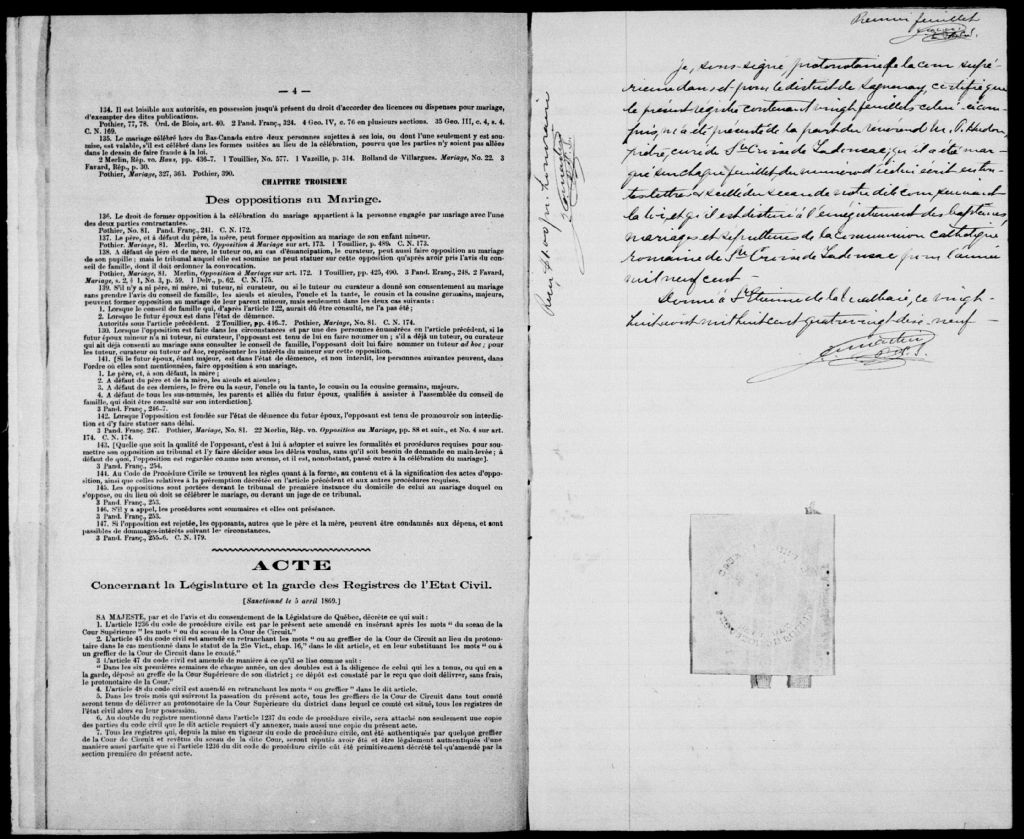 — 4 —
134. Il est loisible aux autorités, en possession jusqu'à présent du droit d'accorder des licences ou dispenses pour mariage,
d'exempter des dites publications.
Pothier, 77, 78. Ord. de Blois, art. 40. 2 Pand. Franç., 324. 4 Geo. IV, c. 76 en plusieurs sections. 35 Geo. III, c. 4, s. 4.
C. N. 169.
135. Le mariage célébré hors du Bas-Canada entre deux personnes sujettes à ses lois, ou dont l'une seulement y est sou-
mise, est valable, s'il est célébré dans les formes usitées au lieu de la célébration, pourvu que les parties n'y soient pas allées
dans le dessin de faire fraude à la loi.
2 Merlin, Rép. vo. Bans, pp. 436-7. 1 Touillier, No. 577. 1 Vazeille, p. 314. Rolland de Villargues. Mariage, No. 22. 3
Favard, Rép., p. 30.
Pothier, Mariage, 327, 361. Pothier, 390.
CHAPITRE TROISIEME
Des oppositions au Mariage.
136. Le droit de former opposition à la célébration du mariage appartient à la personne engagée par mariage avec l'une
des deux parties contractantes.
Pothier, No. 81. Pand. Franç., 241. C. N. 172.
137. Le père, et à défaut du père, la mère, peut former opposition au mariage de son enfant mineur.
Pothier, Mariage, 81. Merlin, vo. Opposition à Mariage sur art. 173. 1 Touillier, p. 489. C. N. 173.
138. A défaut de père et de mère, le tuteur ou, au cas d'émancipation, le curateur, peut aussi faire opposition au mariage
de son pupille ; mais le tribunal auquel elle est soumise ne peut statuer sur cette opposition qu'après avoir pris l'avis du con-
seil de famille, dont il doit ordonner la convocation.
Pothier, Mariage, 81. Merlin, Opposition à Mariage sur art. 172. 1 Touillier, pp. 425, 490. 3 Pand. Franç., 248. 2 Favard,
Mariage, s. 2, § 1, No. 3, p. 59. 1 Delv., p. 62. C. N. 175.
139. S'il n'y a ni père, ni mère, ni tuteur, ni curateur, ou si le tuteur ou curateur a donné son consentement au mariage
sans prendre l'avis du conseil de famille, les aïeuls et aïeules, l'oncle et la tante, le cousin et la cousine germains, majeurs,
peuvent former opposition au mariage de leur parent mineur, mais seulement dans les deux cas suivants :
1. Lorsque le conseil de famille qui, d'après l'article 122, aurait dû être consulté, ne l'a pas été ;
2. Lorsque le futur époux est dans l'état de démence.
Autorités sous l'article précédent. 2 Touillier, pp. 446-7. Pothier, Mariage, No. 81. C. N. 174.
130. Lorsque l'opposition est faite dans les circonstances et par une des personnes énumérées en l'article précédent, si le
futur époux mineur n'a ni tuteur, ni curateur, l'opposant est tenu de lui en faire nommer un ; s'il a déjà un tuteur, ou curateur
qui ait déjà consenti au mariage sans consulter le conseil de famille, l'opposant doit lui faire nommer un tuteur ad hoc ; pour
les tuteur, curateur ou tuteur ad hoc, représenter les intérêts du mineur sur cette opposition.
141. [Si le futur époux, étant majeur, est dans l'état de démence, et non interdit, les personnes suivantes peuvent, dans
l'ordre où elles sont mentionnées, faire opposition à son mariage,
1. Le père, et, à son défaut, la mère ;
2. A défaut du père et de la mère, les aïeuls et aïeules ;
3. A défaut de ces derniers, le frère ou la sœur, l'oncle ou la tante, le cousin ou la cousine germains, majeurs.
4. A défaut de tous les sus-nommés, les parents et alliés du futur époux, qualifiés à assister à l'assemblée du conseil de
famille, qui doit être consulté sur son interdiction].
3 Pand. Franç., 246-7.
142. Lorsque l'opposition est fondée sur l'état de démence du futur époux, l'opposant est tenu de promouvoir son interdic-
tion et d'y faire statuer sans délai.
3 Pand. Franç. 247. Pothier, Mariage, No. 81. 22 Merlin, Rép. vo. Opposition au Mariage, pp. 88 et suiv., et No. 4 sur art.
174. C. N. 174.
143. [Quelle que soit la qualité de l'opposant, c'est à lui à adopter et suivre les formalités et procédures requises pour sou-
mettre son opposition au tribunal et l'y faire décider sous les délais voulus, sans qu'il soit besoin de demande en main-levée ; à
défaut de quoi, l'opposition est regardée comme non avenue, et il est, nonobstant, passé outre à la célébration du mariage].
3 Pand. Franç., 254.
144. Au Code de Procédure Civile se trouvent les règles quant à la forme, au contenu et à la signification des actes d'oppo-
sition, ainsi que celles relatives à la préremption décretée en l'article précédent et aux autres procédures requises.
145. Les oppositions sont portées devant le tribunal de première instance du domicile de celui au mariage duquel on
s'oppose, ou du lieu où doit se célébrer le mariage, ou devant un juge de ce tribunal.
3 Pand. Franç., 253.
146. S'il y a appel, les procédures sont sommaires et elles ont préséance.
3 Pand. Franç., 253.
147. Si l'opposition est rejetée, les opposants, autres que le père et la mère, peuvent être condamnés aux dépens, et sont
passibles de dommages-intérêts suivant les circonstances.
3 Pand. Franç., 255-6. C. N. 179.
ACTE
Concernant la Législature et la garde des Registres de l'Etat Civil.
[Sanctionné le 5 avril 1869.]
SA MAJESTE, par et de l'avis et du consentement de la Législature de Québec, décrète ce qui suit :
1. L'article 1236 du code de procédure civile est par le présent acte amendé en insérant après les mots “ du sceau de la
Cour Supérieure ” les mots “ ou du sceau de la Cour de Circuit.”
2. L'article 45 du code civil est amendé en retranchant les mots “ ou au greffier de la Cour de Circuit au lieu du protono-
taire dans le cas mentionné dans le statut de la 25e Vict., chap. 16,” dans le dit article, et en leur substituant les mots “ ou à
un greffier de la Cour de Circuit dans le comté.”
3 L'article 47 du code civil est amendé de manière à ce qu'il se lise comme suit :
“ Dans les six premières semaines de chaque année, un des doubles est à la diligence de celui qui les a tenus, ou qui en a
la garde, déposé au greffe de la Cour Supérieure de son district ; ce dépôt est constaté par le reçu que doit délivrer, sans frais,
le protonotaire de la Cour.”
4. L'article 48 du code civil est amendé en retranchant les mots “ ou greffier ” dans le dit article.
5. Dans les trois mois qui suivront la passation du présent acte, tous les greffiers de la Cour de Circuit dans tout comté
seront tenus de délivrer au protonotaire de la Cour Supérieure du district dans lequel ce comté est situé, tous les registres de
l'état civil alors en leur possession.
6. Au double du registre mentionné dans l'article 1237 du code de procédure civile, sera attaché non seulement une copie
des parties du code civil que le dit article requiert d'y annexer, mais aussi une copie du présent acte.
7. Tous les registres qui, depuis la mise en vigueur du code de procédure civile, ont été authentiqués par quelque greffier
de la Cour de Circuit et revêtus du sceau de la dite Cour, seront réputés avoir été et être légalement authentiqués d'une
manière aussi parfaite que si l'article 1236 du dit code de procédure civile eût été primitivement décrété tel qu'amendé par la
section première du présent acte.
Premier feuillet
P.C.S.
Je, sous-signé, protonotaire de la cour supé-
rieure dans et pour le district de Saguenay, certifie que
le présent registre contenant vingt feuillets celui-ci com-
pris, m'a été présenté de la part du révérend M.
prêtre, curé de Ste Croix de Tadousac; qu'il a été mar-
qué sur chaque feuillet du numéro d'icelui écrit en tou-
tes lettres et scellé du sceau de notre dite cour suivant
la loi, et qu'il est destiné à l'enrégistrement des baptêmes
mariages et sépultures de la communion catholique
romaine de Ste Croix de Tadousac pour l'année
mil neuf cent.
Donné à St Etienne de la Malbaie, ce vingt-
huit août mil huit cent quatre vingt dix-neuf
P.C.S.